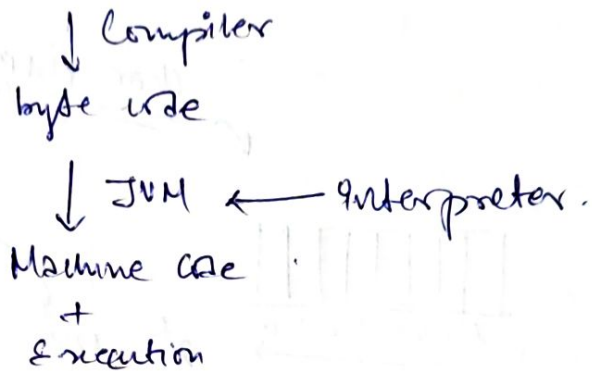 ↓ Compiler
byte code
↓ JVM ← Interpreter.
Machine code
+
Execution